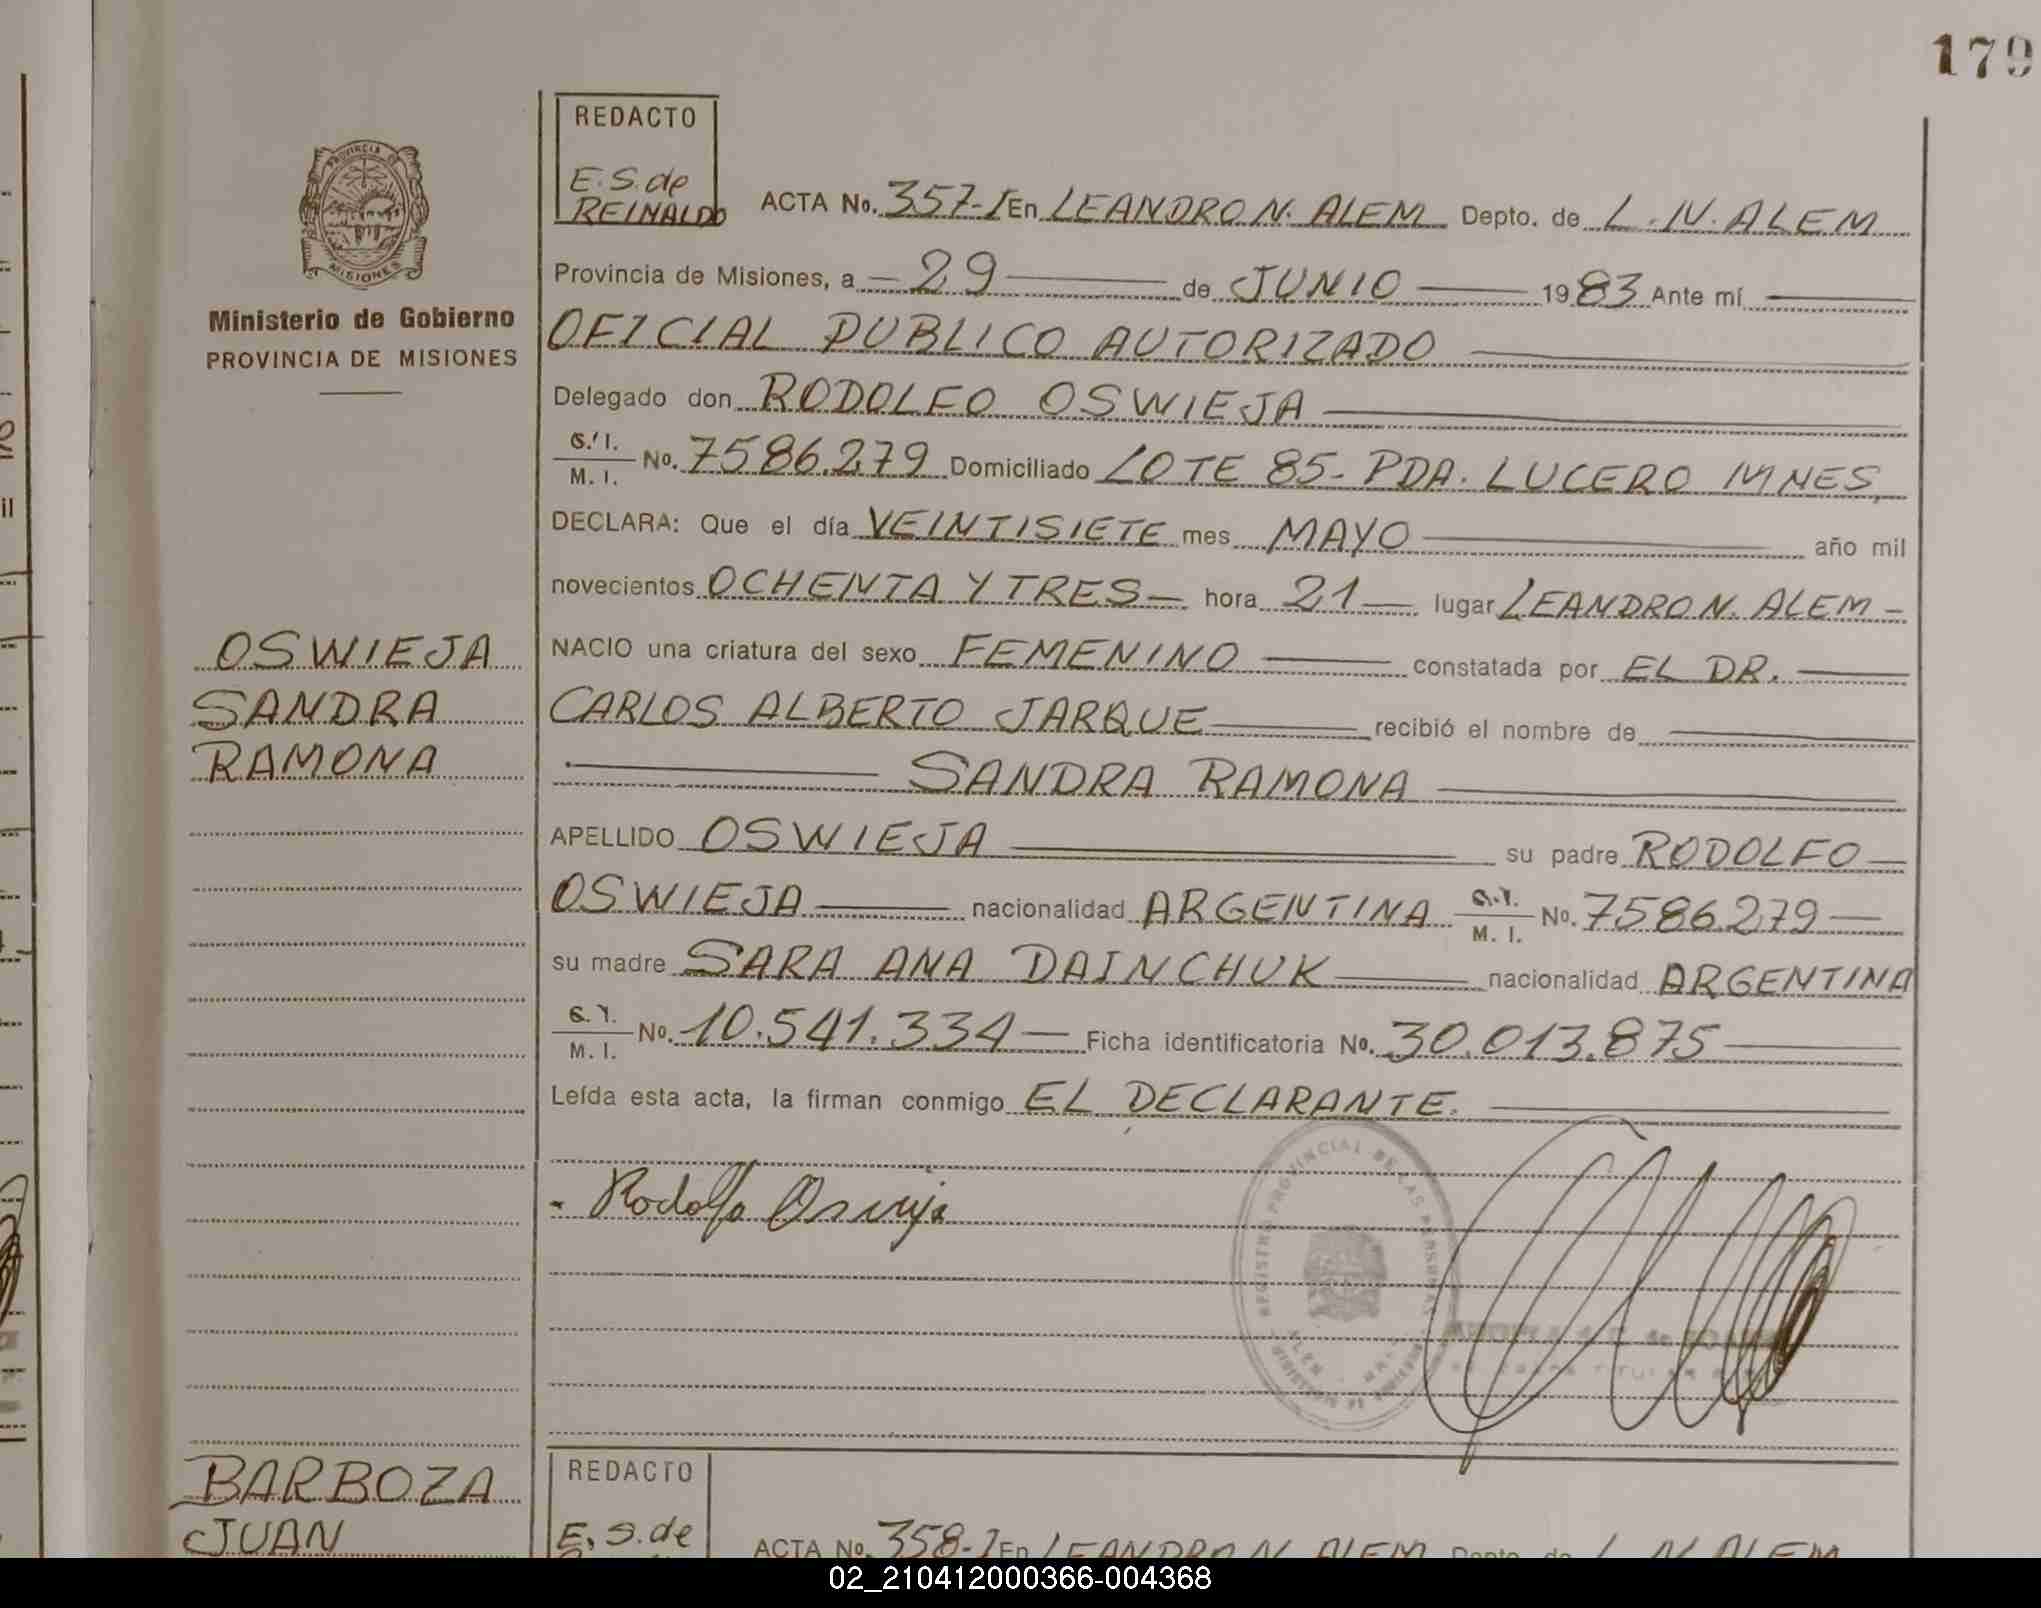 179
REDACTO
E.S. de
REINALDO
ACTA No. 357-I En LEANDRO N. ALEM Depto. de L. N. ALEM
PROVINCIA DE
MISIONES
Ministerio de Gobierno
PROVINCIA DE MISIONES
Provincia de Misiones, a 29 de JUNIO 1983 Ante mí
OFICIAL PUBLICO AUTORIZADO
Delegado don RODOLFO OSWIEJA
M. I. No. 7586.279 Domiciliado LOTE 85- PDA. LUCERO MNES,
DECLARA: Que el día VEINTISIETE mes MAYO año mil
novecientos OCHENTA Y TRES hora 21 lugar LEANDRO N. ALEM
OSWIEJA
SANDRA
RAMONA
NACIO una criatura del sexo FEMENINO constatada por EL DR.
CARLOS ALBERTO JARQUE recibió el nombre de
SANDRA RAMONA
APELLIDO OSWIEJA su padre RODOLFO
OSWIEJA nacionalidad ARGENTINA M. I. No. 7586.279
su madre SARA ANA DAINCHUK nacionalidad ARGENTINA
M. I. No. 10.541.334 Ficha identificatoria No. 30.013.875
Leída esta acta, la firman conmigo EL DECLARANTE.
Rodolfo Oswieja
REGISTRO PROVINCIAL DE LAS PERSONAS
BARBOZA
JUAN
REDACTO
E. S. de
ACTA No. 358-I En LEANDRO N. ALEM Depto. de L. N. ALEM
02_210412000366-004368